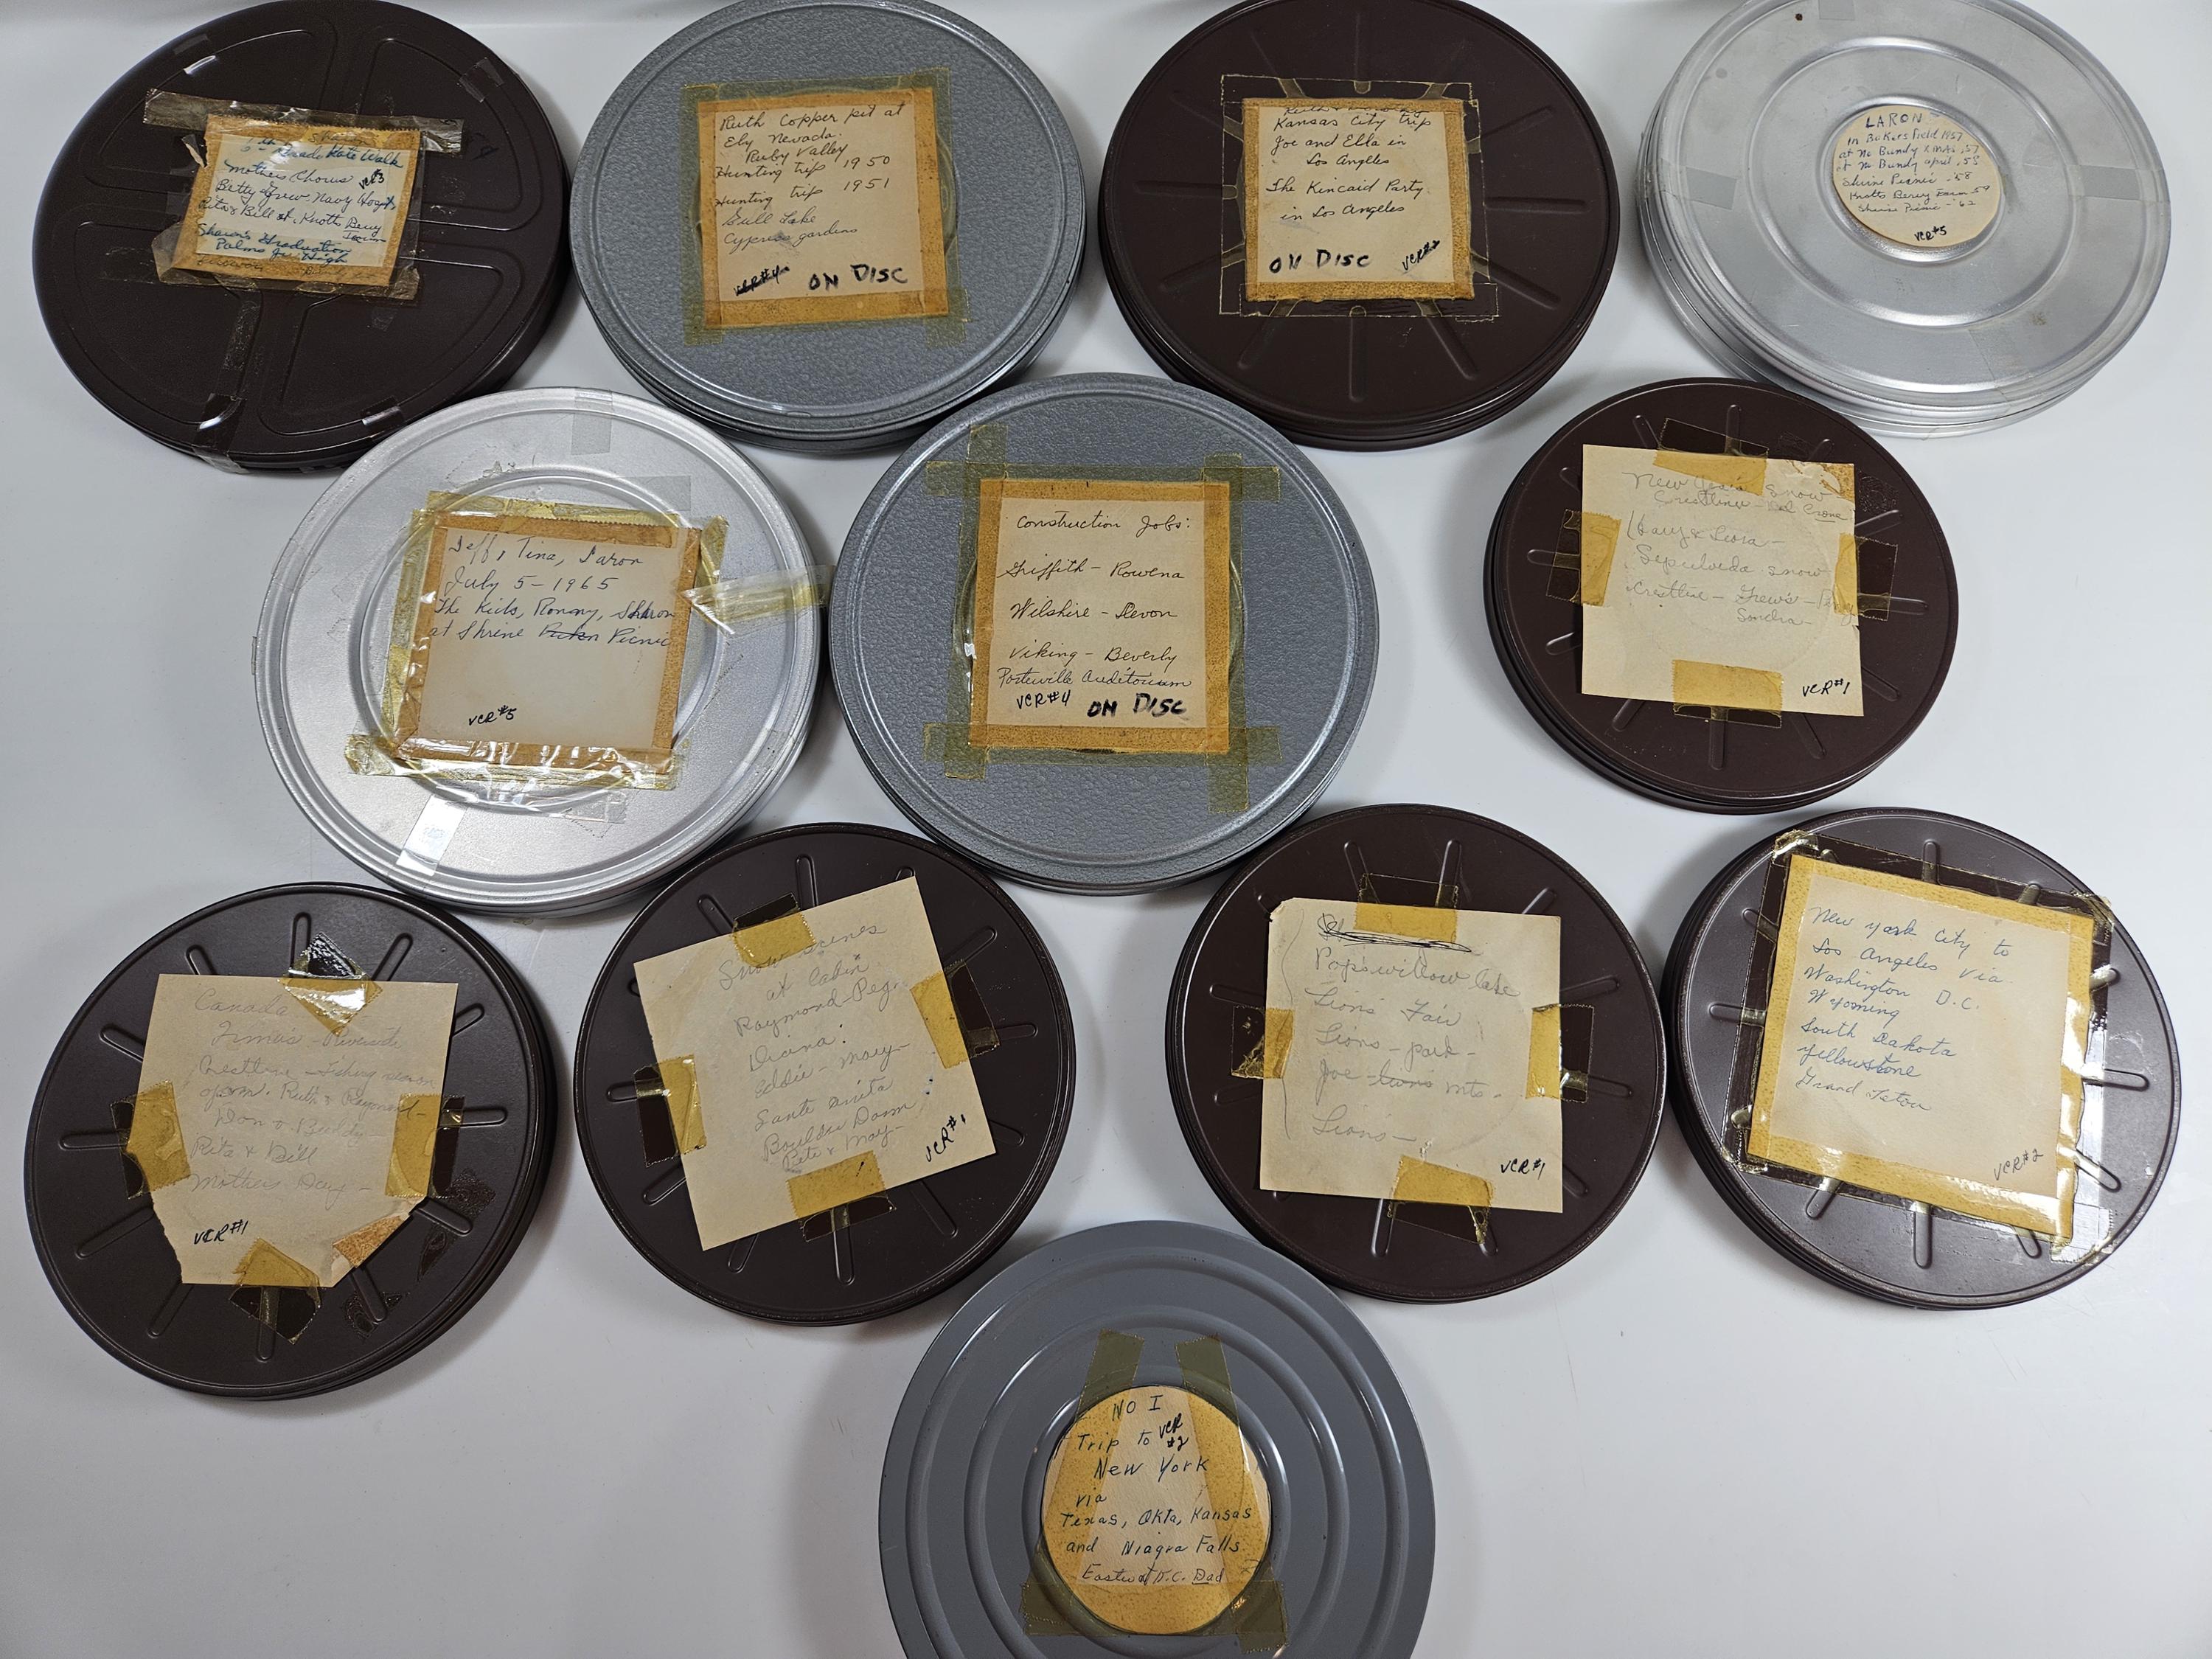 Grade Kate Walk
Mothers Chorus VCR#3
Betty Grew Navy
Rita & Bill at Knotts Berry
Farm
Sharon's Graduation
Palms Jr. High
Ruth Copper pit at
Ely Nevada.
Ruby Valley
Hunting trip 1950
Hunting trip 1951
Gull Lake
Cypress gardens
VCR#4
ON DISC
Kansas City trip
Joe and Ella in
Los Angeles
The Kincaid Party
in Los Angeles
ON DISC VCR#2
LARON
In Bakersfield 1957
at No Bundy XMAS, 57
at No Bundy april, 58
Shrine Picnic - '58
Knotts Berry Farm 59
Shrine Picnic - '62
VCR#5
Jeff, Tina, Laron
July 5 - 1965
The Kids, Ronny, Sharon
at Shrine Picnic
VCR#5
Construction Jobs:
Griffith - Rowena
Wilshire - Devon
Viking - Beverly
Porterville Auditorium
VCR#4 ON DISC
New snow
Crestline -
Sepulveda snow
Crestline - Grew's -
Sandra -
VCR#1
Canada
Riverside
Crestline - Fishing season
open. Ruth & Raymond -
Don & Buddy -
Rita & Bill
Mothers Day -
VCR#1
Snow scenes
at Cabin
Raymond - Peg.
Diana.
Eddie - Mary -
Santa Anita
Boulder Dam
Pete & May -
VCR#1
Pop's willow lake
Lions Fair
Lions - park -
Joe - Lions mts -
Lions -
VCR#1
New York City to
Los Angeles via
Washington D.C.
Wyoming
South Dakota
Yellowstone
Grand Teton
VCR#2
NO I
Trip to VCR #2
New York
via
Texas, Okla, Kansas
and Niagra Falls
D.C. Dad